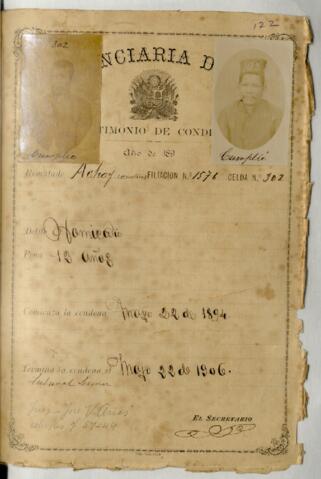 122
302
NCIARIA D
TIMONIO DE CONDE
Año de 189
Cumplió
Cumplió
Rematado Achoy FILIACION N.º 1576 CELDA N.º 302
Delito Homicidio
Pena 12 años
Comienza la condena Mayo 22 de 1894
Termina la condena el Mayo 22 de 1906.
Juez - José
EL SECRETARIO